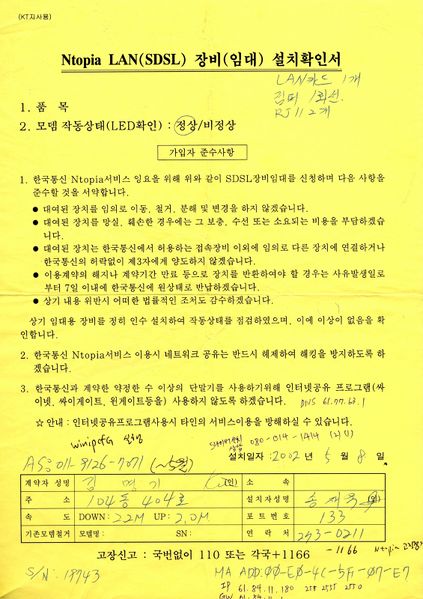 (KT지사용)
Ntopia LAN(SDSL) 장비(임대) 설치확인서
LAN카드 1개
1회선
RJ11 2개
1. 품 목
2. 모뎀 작동상태(LED확인) : 정상/비정상
가입자 준수사항
1. 한국통신 Ntopia서비스 이용을 위해 위와 같이 SDSL장비임대를 신청하며 다음 사항을
준수할 것을 서약합니다.
● 대여된 장치를 임의로 이동, 철거, 분해 및 변경을 하지 않겠습니다.
● 대여된 장치를 망실, 훼손한 경우에는 그 보충, 수선 또는 소요되는 비용을 부담하겠습니
다.
● 대여된 장치는 한국통신에서 허용하는 접속장비 이외에 임의로 다른 장치에 연결하거나
한국통신의 허락없이 제3자에게 양도하지 않겠습니다.
● 이용계약의 해지나 계약기간 만료 등으로 장치를 반환하여야 할 경우는 사유발생일로
부터 7일 이내에 한국통신에 원상태로 반납하겠습니다.
● 상기 내용 위반시 어떠한 법률적인 조처도 감수하겠습니다.
상기 임대용 장비를 정히 인수 설치하여 작동상태를 점검하였으며, 이에 이상이 없음을 확
인합니다.
2. 한국통신 Ntopia서비스 이용시 네트워크 공유는 반드시 해제하여 해킹을 방지하도록 하
겠습니다.
3. 한국통신과 계약한 약정한 수 이상의 단말기를 사용하기위해 인터넷공유 프로그램(싸
이넷, 싸이게이트, 윈게이트등을) 사용하지 않도록 하겠습니다. DNS 61.77.63.1
☆ 안내 : 인터넷공유프로그램사용시 타인의 서비스이용을 방해하실 수 있습니다.
winipcfg
080-014-1414
AS: 011-9126-7071 (~5월)
설치일자 : 2002 년 5 월 8 일
계약자 성명 김명기 (인) 소 속
주 소 104동 404호 설치자성명
속 도 DOWN: 2.2M UP: 2.0M 포트번호 133
기존모뎀철거 모뎀명: SN: 연 락 처 253-0211
고장신고 : 국번없이 110 또는 각국+1166
-1166 Ntopia
S/N: 19743
MA ADD: 00-E0-4C-5A-07-E7
IP 61.84.11.180 255 255 255 0
GW 61.84.11.1